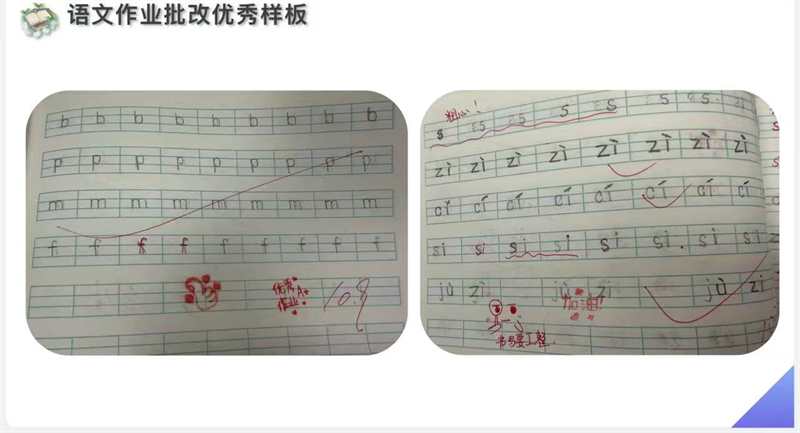 语文作业批改优秀样板
b b b b b b b b b
p p p p p p p p p
m m m m m m m m m
f f f f f f f f f
优秀A+
作业
10.8
粗心！
s s s s s s s
zì zì zì zì zì zì zì zì
cí cí cí cí cí cí cí cí
si si si si si si si si
jù zì jù zi jù zi
加油!
书写要工整.